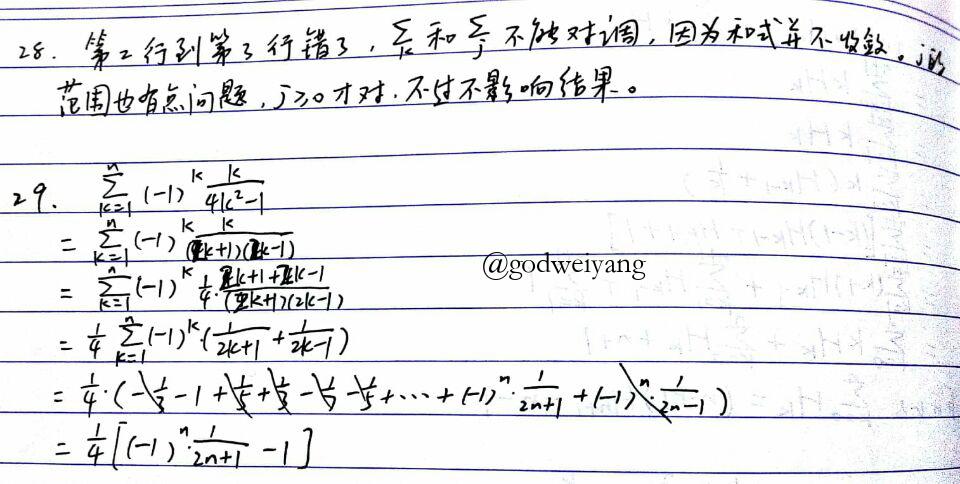 28. 第2行到第3行错了，∑_k 和 ∑_j 不能对调，因为和式并不收敛。j的
范围也有点问题，j≥0才对，不过不影响结果。
29. ∑_{k=1}^{n} (-1)^k k/(4k²-1)
= ∑_{k=1}^{n} (-1)^k k/((2k+1)(2k-1))
@godweiyang
= ∑_{k=1}^{n} (-1)^k 1/4 · (2k+1+2k-1)/((2k+1)(2k-1))
= 1/4 ∑_{k=1}^{n} (-1)^k · (1/(2k+1) + 1/(2k-1))
= 1/4 · (-1/3 - 1 + 1/5 + 1/3 - 1/7 - 1/5 + ⋯ + (-1)^n · 1/(2n+1) + (-1)^n · 1/(2n-1))
= 1/4 [(-1)^n · 1/(2n+1) - 1]